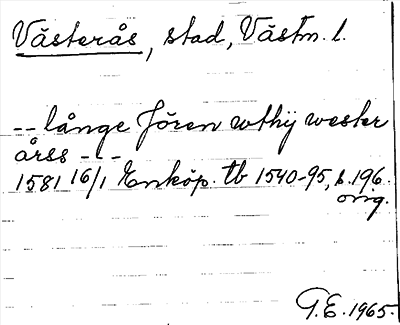 Västerås, stad, Västm. l.
-- långe Jören wthij wester
årss - - -
1581 16/1 Enköp. tb 1540-95, s. 196.
orig.
T.E. 1965.